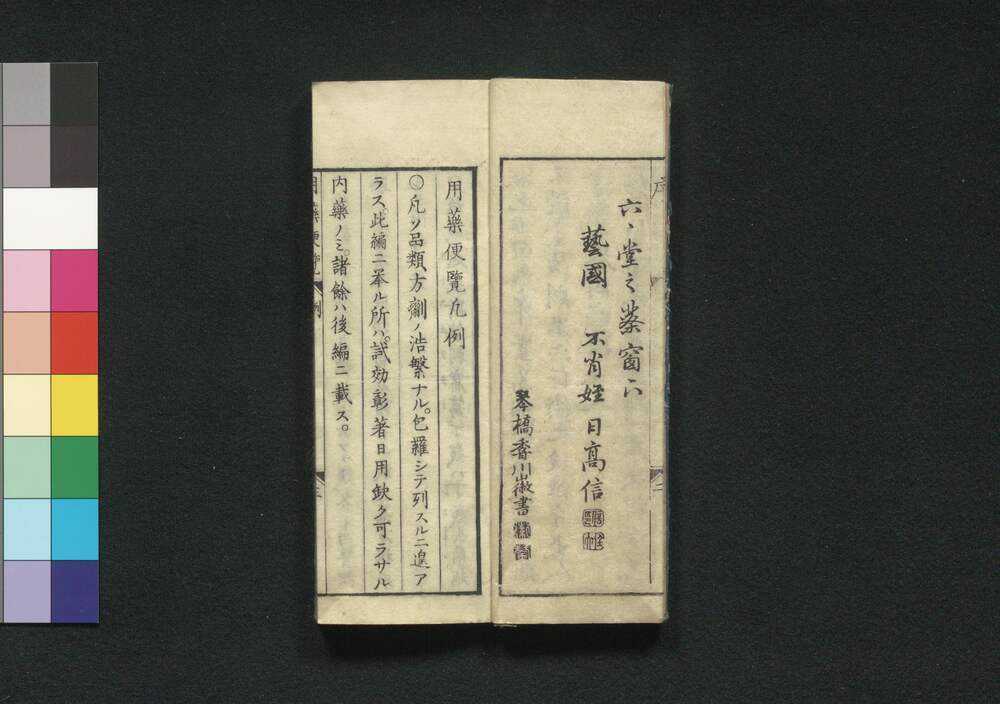 序
六〻堂之蘂窗下
藝國 不肖姪 日高信
琴橋香川徽書
二
用藥便覽凡例
〇凡ソ品類方劑ノ浩繁ナル。包羅シテ列スルニ遑ア
ラス。此編ニ举ル所ハ。試効彰著日用欽ク可ラサル
内藥ノミ。諸餘ハ後編ニ載ス。
用藥便覽 例